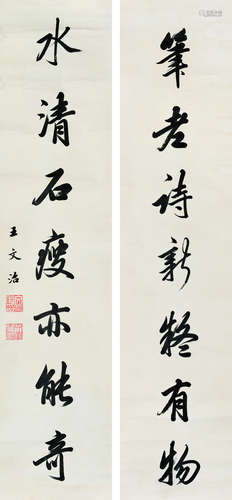 筆老诗新疑有物
水清石瘦亦能奇
王文治